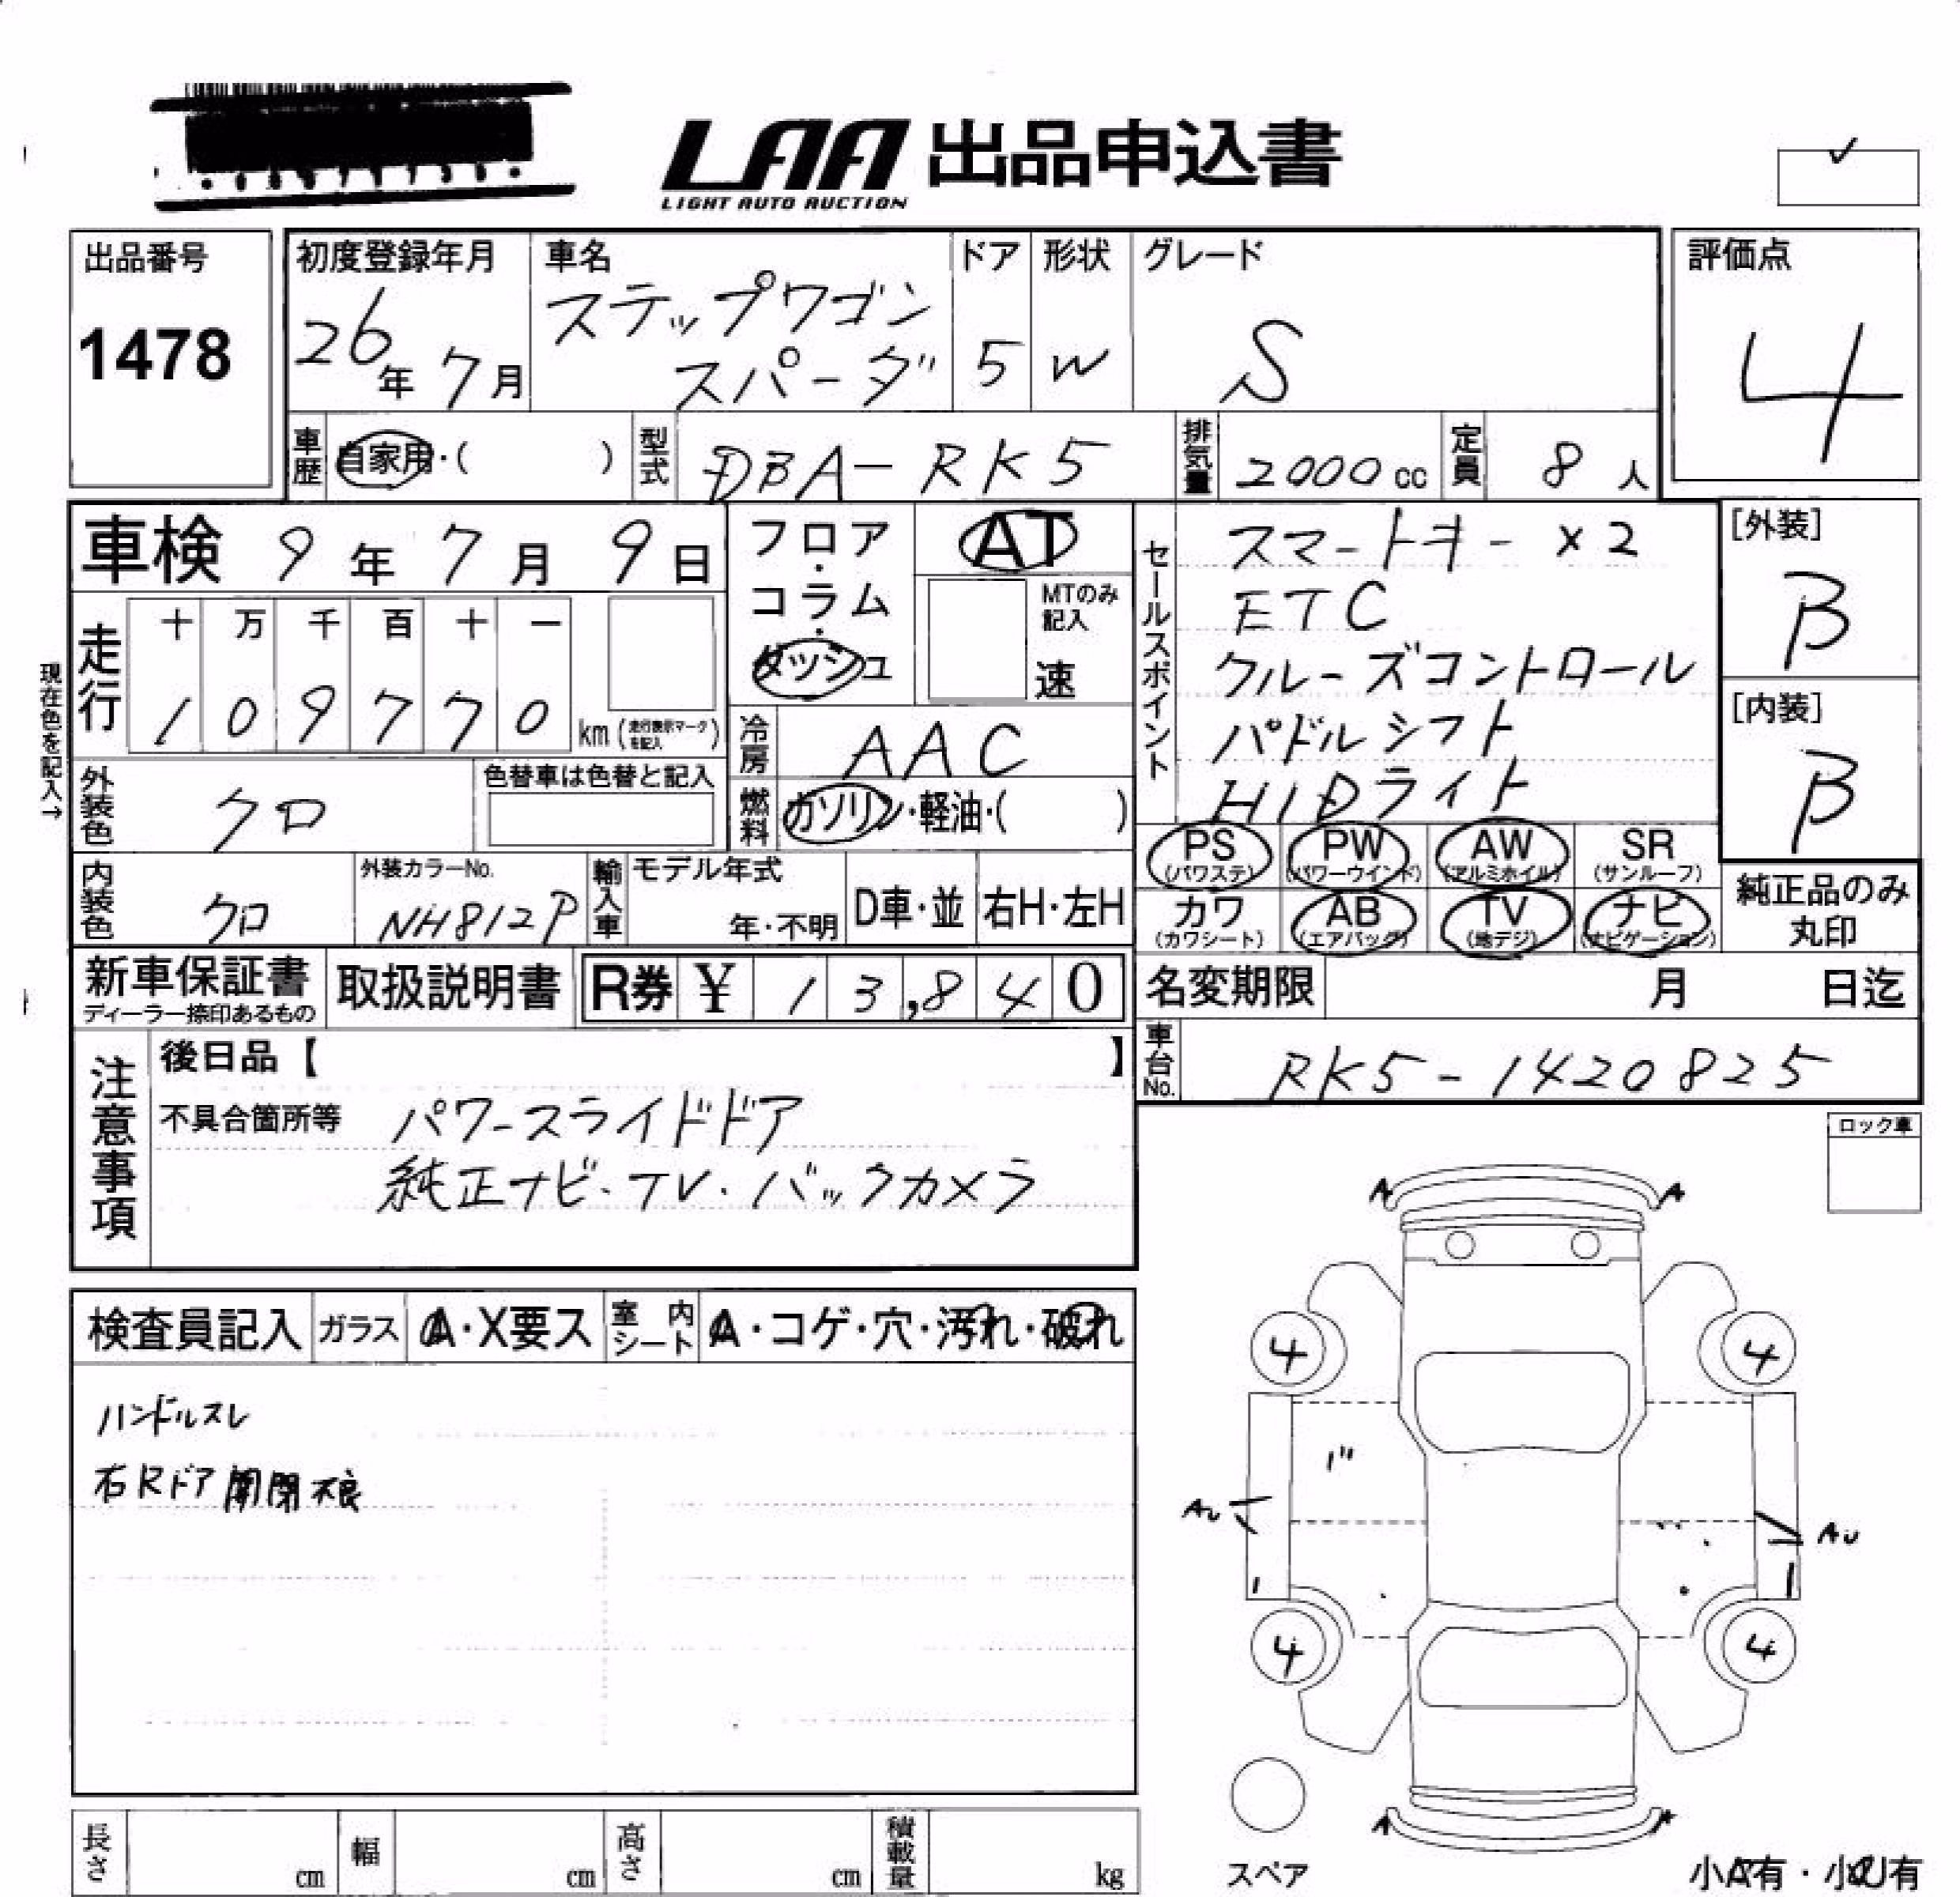 LAA 出品申込書
LIGHT AUTO AUCTION
✓
出品番号
1478
初度登録年月
26年 7月
車名
ステップワゴン
スパーダ
ドア
5
形状
W
グレード
S
評価点
4
車歴
自家用・( )
型式
DBA-RK5
排気量
2000 cc
定員
8 人
車検 9年 7月 9日
フロア・コラム・ダッシュ
AT
MTのみ記入
速
セールスポイント
スマートキー ×2
ETC
クルーズコントロール
パドルシフト
HIDライト
[外装]
B
[内装]
B
現在色を記入→
走行
十 万 千 百 十 一
1 0 9 7 7 0
km (走行表示マークを記入)
冷房
AAC
外装色
クロ
色替車は色替と記入
燃料
ガソリン・軽油・( )
内装色
クロ
外装カラーNo.
NH812P
輸入車
モデル年式
年・不明
D車・並
右H・左H
PS (パワステ)
PW (パワーウインド)
AW (アルミホイル)
SR (サンルーフ)
カワ (カワシート)
AB (エアバッグ)
TV (地デジ)
ナビ (ナビゲーション)
純正品のみ
丸印
新車保証書
ディーラー捺印あるもの
取扱説明書
R券 ¥ 13,840
名変期限 月 日迄
車台No.
RK5-1420825
注意事項
後日品【 】
不具合箇所等
パワースライドドア
純正ナビ・TV・バックカメラ
ロック車
検査員記入
ガラス
A・X要ス
室内シート
A・コゲ・穴・汚れ・破れ
ハンドルスレ
右Rドア開閉不良
A A
4 4
AU
AU
4 4
A A
スペア
小A有・小U有
長さ cm
幅 cm
高さ cm
積載量 kg